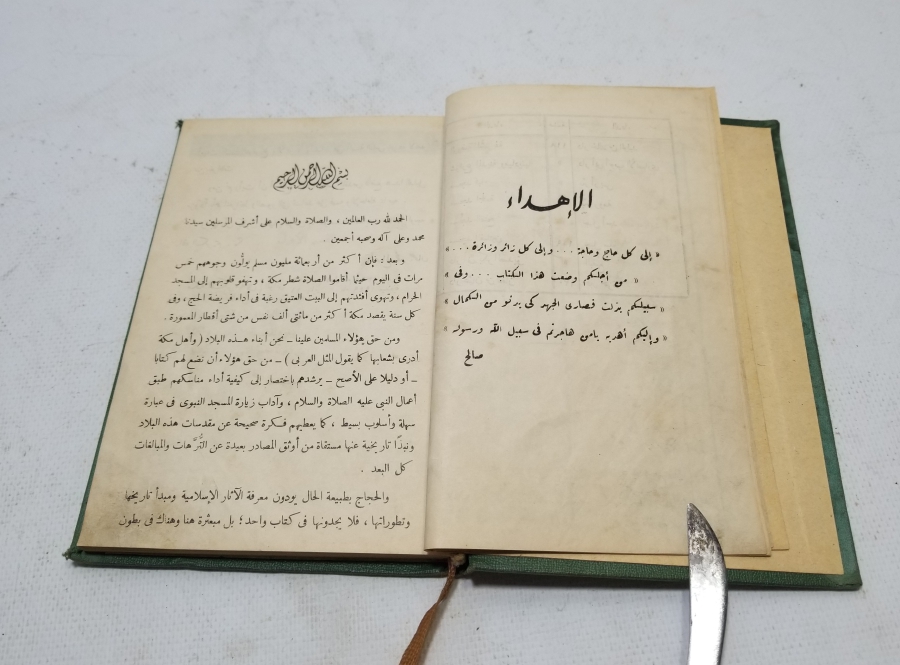 الإهداء
« إلى كل حاج وحاجة . . . وإلى كل زائر وزائرة . . . »
« من أجلكم وضعت هذا الكتاب . . . وفى »
« سبيلكم بذلت قصارى الجهد كى يدنو من الكمال »
« وإليكم أهديه يامن هاجرتم فى سبيل الله ورسوله »
صالح
بسم الله الرحمن الرحيم
الحمد لله رب العالمين ، والصلاة والسلام على أشرف المرسلين سيدنا
محمد وعلى آله وصحبه أجمعين .
وبعد : فإن أكثر من أربعمائة مليون مسلم يولُّون وجوههم خمس
مرات فى اليوم حيثما أقاموا الصلاة شطر مكة ، وتهفو قلوبهم إلى المسجد
الحرام ، وتهوى أفئدتهم إلى البيت العتيق رغبة فى أداء فريضة الحج ، وفى
كل سنة يقصد مكة أكثر من مائتى ألف نفس من شتى أقطار المعمورة .
ومن حق هؤلاء المسلمين علينا ـ نحن أبناء هذه البلاد ( وأهل مكة
أدرى بشعابها كما يقول المثل العربى ) ـ من حق هؤلاء أن نضع لهم كتابا
ـ أو دليلا على الأصح ـ يرشدهم باختصار إلى كيفية أداء مناسكهم طبق
أعمال النبى عليه الصلاة والسلام ، وآداب زيارة المسجد النبوى فى عبارة
سهلة وأسلوب بسيط ، كما يعطيهم فكرة صحيحة عن مقدسات هذه البلاد
ونبذًا تاريخية عنها مستقاة من أوثق المصادر بعيدة عن التُّرَّهات والمبالغات
كل البعد .
والحجاج بطبيعة الحال يودون معرفة الآثار الإسلامية ومبدأ تاريخها
وتطوراتها ، فلا يجدونها فى كتاب واحد ؛ بل مبعثرة هنا وهناك فى بطون